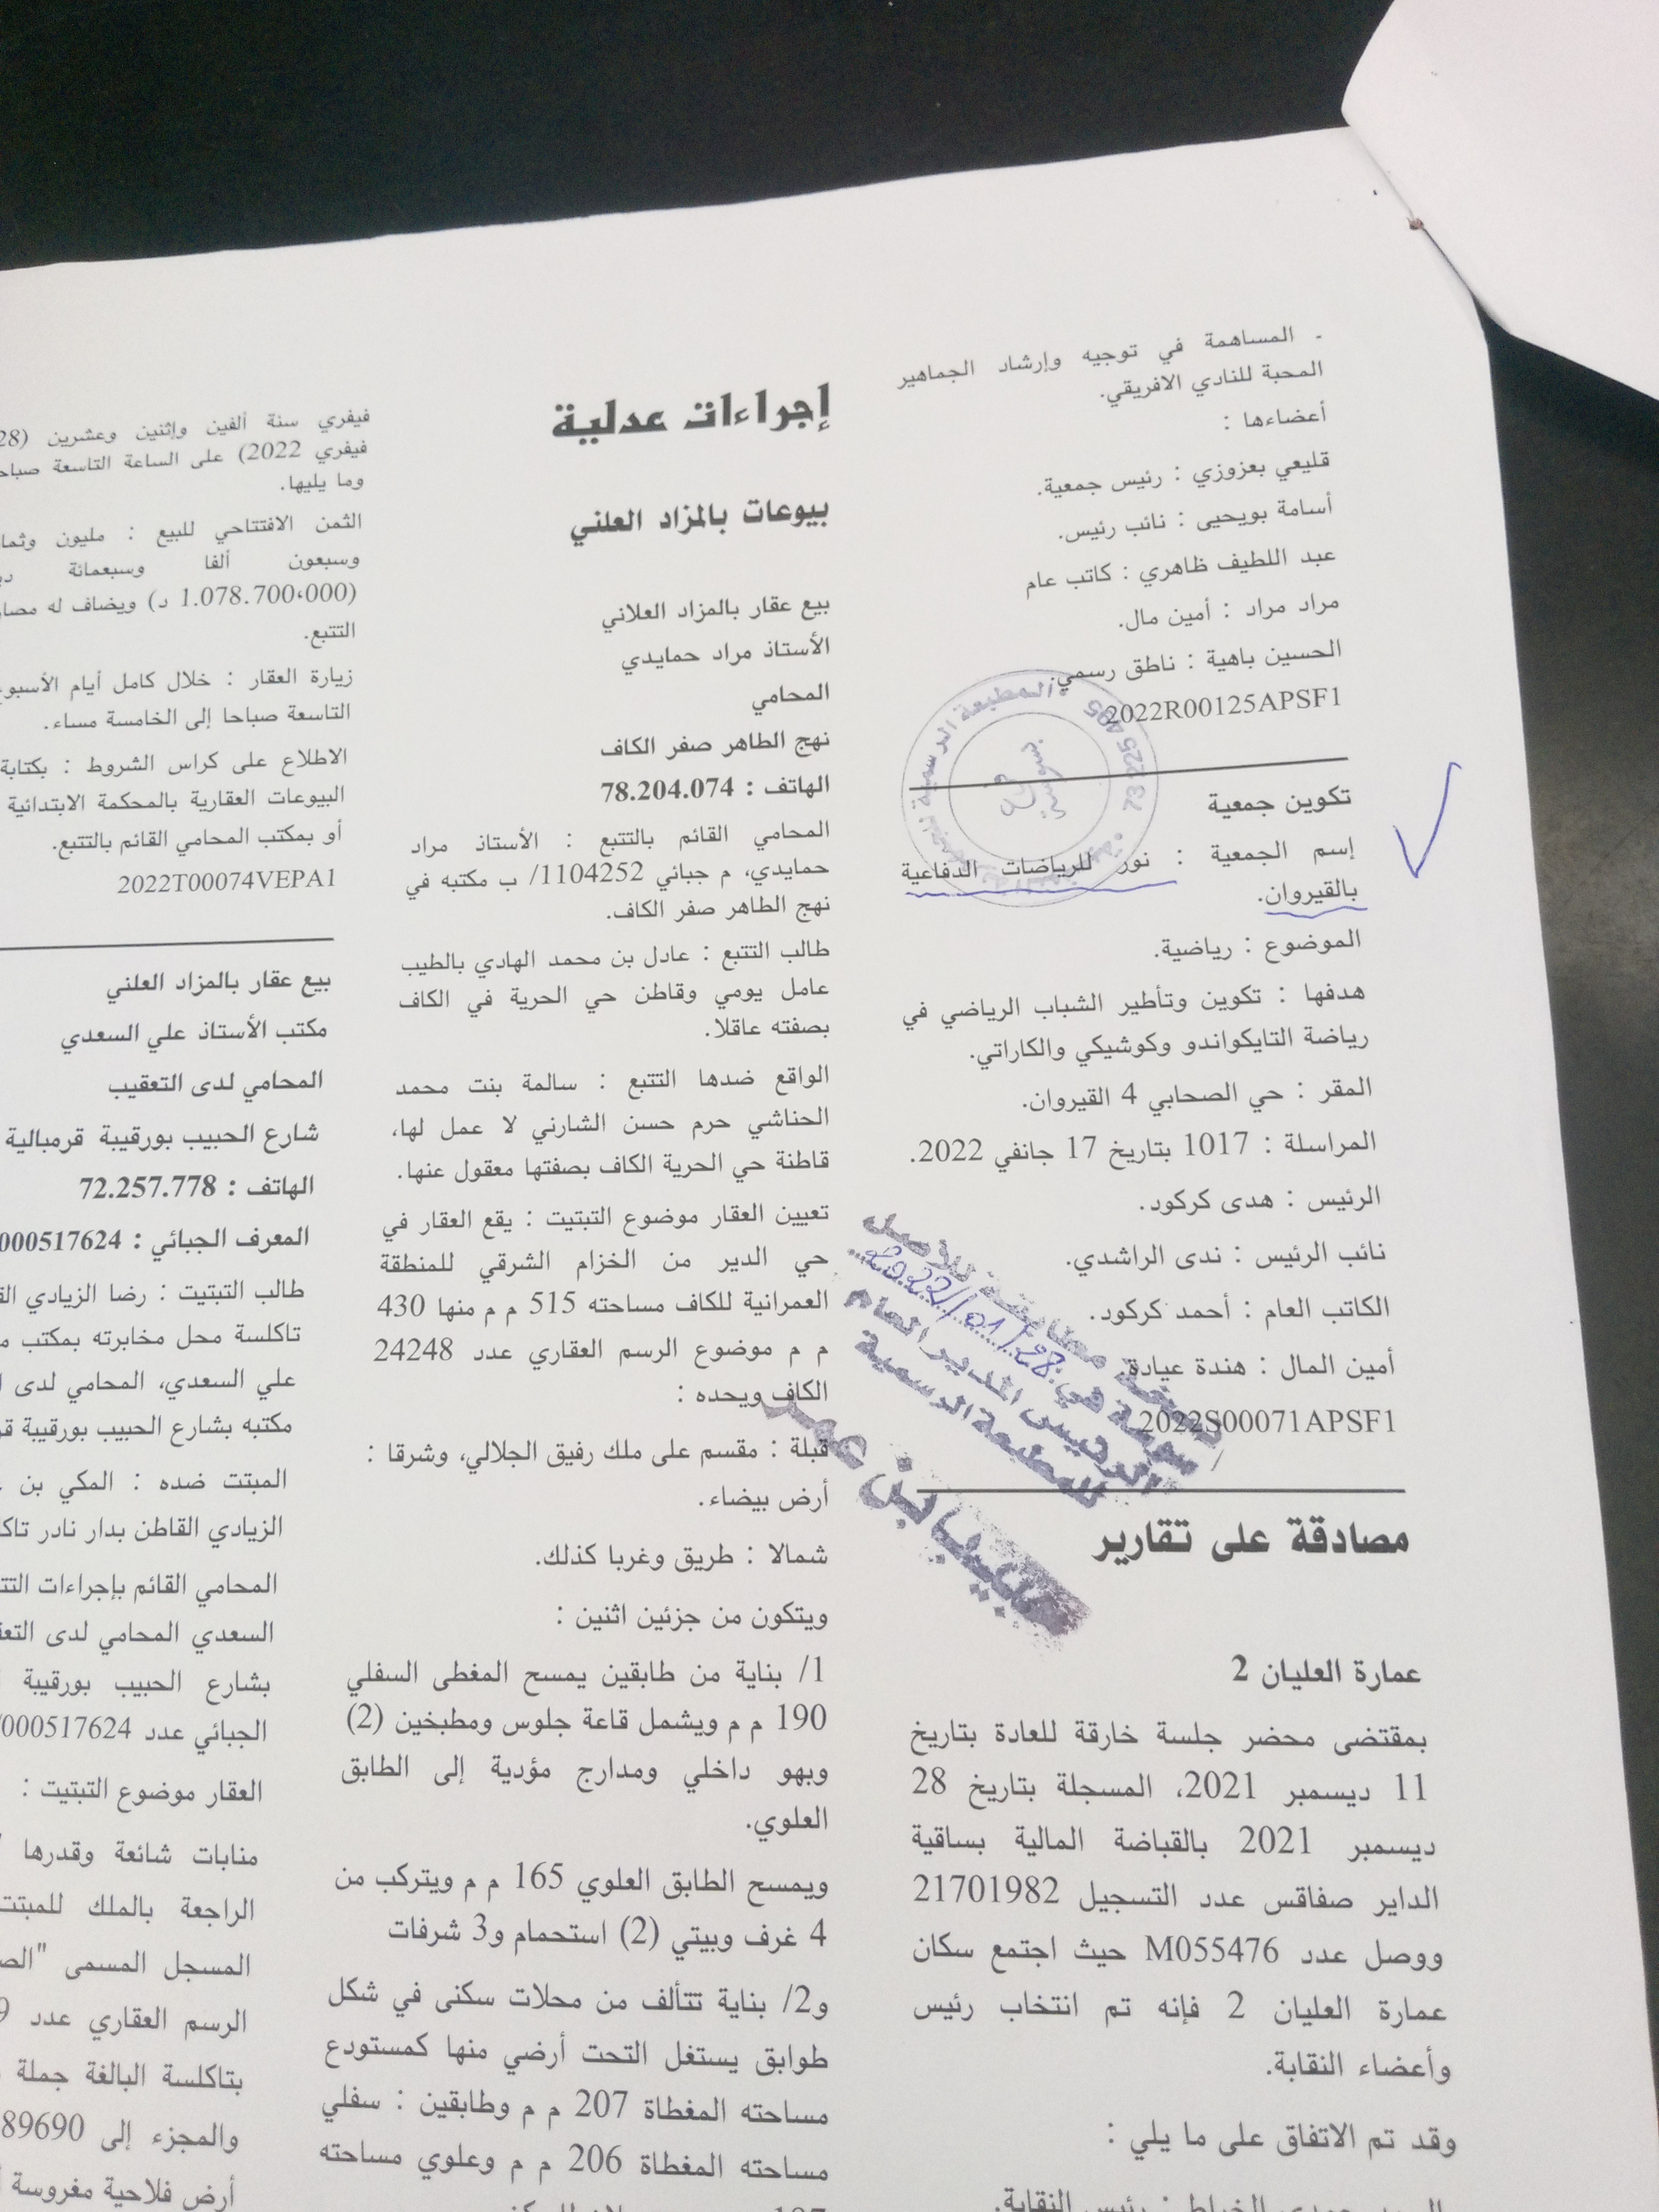 - المساهمة في توجيه وإرشاد الجماهير
المحبة للنادي الافريقي.
أعضاءها :
قليعي بعزوزي : رئيس جمعية.
أسامة بويحيى : نائب رئيس.
عبد اللطيف ظاهري : كاتب عام
مراد مراد : أمين مال.
الحسين باهية : ناطق رسمي.
2022R00125APSF1
73 225 495
تكوين جمعية
إسم الجمعية : نور للرياضات الدفاعية
بالقيروان.
الموضوع : رياضية.
هدفها : تكوين وتأطير الشباب الرياضي في
رياضة التايكواندو وكوشيكي والكاراتي.
المقر : حي الصحابي 4 القيروان.
المراسلة : 1017 بتاريخ 17 جانفي 2022.
الرئيس : هدى كركود.
نائب الرئيس : ندى الراشدي.
الكاتب العام : أحمد كركود.
أمين المال : هندة عيادة.
2022S00071APSF1
نسخة مطابقة للأصل
سوسة في 2022/01/28
الرئيس المدير العام
للمطبعة الرسمية
مصادقة على تقارير
عمارة العليان 2
بمقتضى محضر جلسة خارقة للعادة بتاريخ
11 ديسمبر 2021، المسجلة بتاريخ 28
ديسمبر 2021 بالقباضة المالية بساقية
الداير صفاقس عدد التسجيل 21701982
ووصل عدد M055476 حيث اجتمع سكان
عمارة العليان 2 فإنه تم انتخاب رئيس
وأعضاء النقابة.
وقد تم الاتفاق على ما يلي :
إجراءات عدلية
بيوعات بالمزاد العلني
بيع عقار بالمزاد العلاني
الأستاذ مراد حمايدي
المحامي
نهج الطاهر صفر الكاف
الهاتف : 78.204.074
المحامي القائم بالتتبع : الأستاذ مراد
حمايدي، م جبائي 1104252/ ب مكتبه في
نهج الطاهر صفر الكاف.
طالب التتبع : عادل بن محمد الهادي بالطيب
عامل يومي وقاطن حي الحرية في الكاف
بصفته عاقلا.
الواقع ضدها التتبع : سالمة بنت محمد
الحناشي حرم حسن الشارني لا عمل لها،
قاطنة حي الحرية الكاف بصفتها معقول عنها.
تعيين العقار موضوع التبتيت : يقع العقار في
حي الدير من الخزام الشرقي للمنطقة
العمرانية للكاف مساحته 515 م م منها 430
م م موضوع الرسم العقاري عدد 24248
الكاف ويحده :
قبلة : مقسم على ملك رفيق الجلالي، وشرقا :
أرض بيضاء.
شمالا : طريق وغربا كذلك.
ويتكون من جزئين اثنين :
1/ بناية من طابقين يمسح المغطى السفلي
190 م م ويشمل قاعة جلوس ومطبخين (2)
وبهو داخلي ومدارج مؤدية إلى الطابق
العلوي.
ويمسح الطابق العلوي 165 م م ويتركب من
4 غرف وبيتي (2) استحمام و3 شرفات
و2/ بناية تتألف من محلات سكنى في شكل
طوابق يستغل التحت أرضي منها كمستودع
مساحته المغطاة 207 م م وطابقين : سفلي
مساحته المغطاة 206 م م وعلوي مساحته
فيفري سنة ألفين وإثنين وعشرين (28
فيفري 2022) على الساعة التاسعة صباحا
وما يليها.
الثمن الافتتاحي للبيع : مليون
وسبعون ألفا وسبعمائة
(1.078.700،000 د) ويضاف له
التتبع.
زيارة العقار : خلال كامل أيام الأسبوع
التاسعة صباحا إلى الخامسة مساء.
الاطلاع على كراس الشروط : بكتابة
البيوعات العقارية بالمحكمة الابتدائية
أو بمكتب المحامي القائم بالتتبع.
2022T00074VEPA1
بيع عقار بالمزاد العلني
مكتب الأستاذ علي السعدي
المحامي لدى التعقيب
شارع الحبيب بورقيبة قرمبالية
الهاتف : 72.257.778
المعرف الجبائي : 000517624
طالب التبتيت : رضا الزيادي
تاكلسة محل مخابرته بمكتب
علي السعدي، المحامي لدى
مكتبه بشارع الحبيب بورقيبة
المبتت ضده : المكي بن
الزيادي القاطن بدار نادر
المحامي القائم بإجراءات
السعدي المحامي لدى
بشارع الحبيب بورقيبة
الجبائي عدد 000517624/
العقار موضوع التبتيت :
منابات شائعة وقدرها
الراجعة بالملك
المسجل المسمى
الرسم العقاري عدد
بتاكلسة البالغة جملة
والمجزء إلى 89690
أرض فلاحية مغروسة